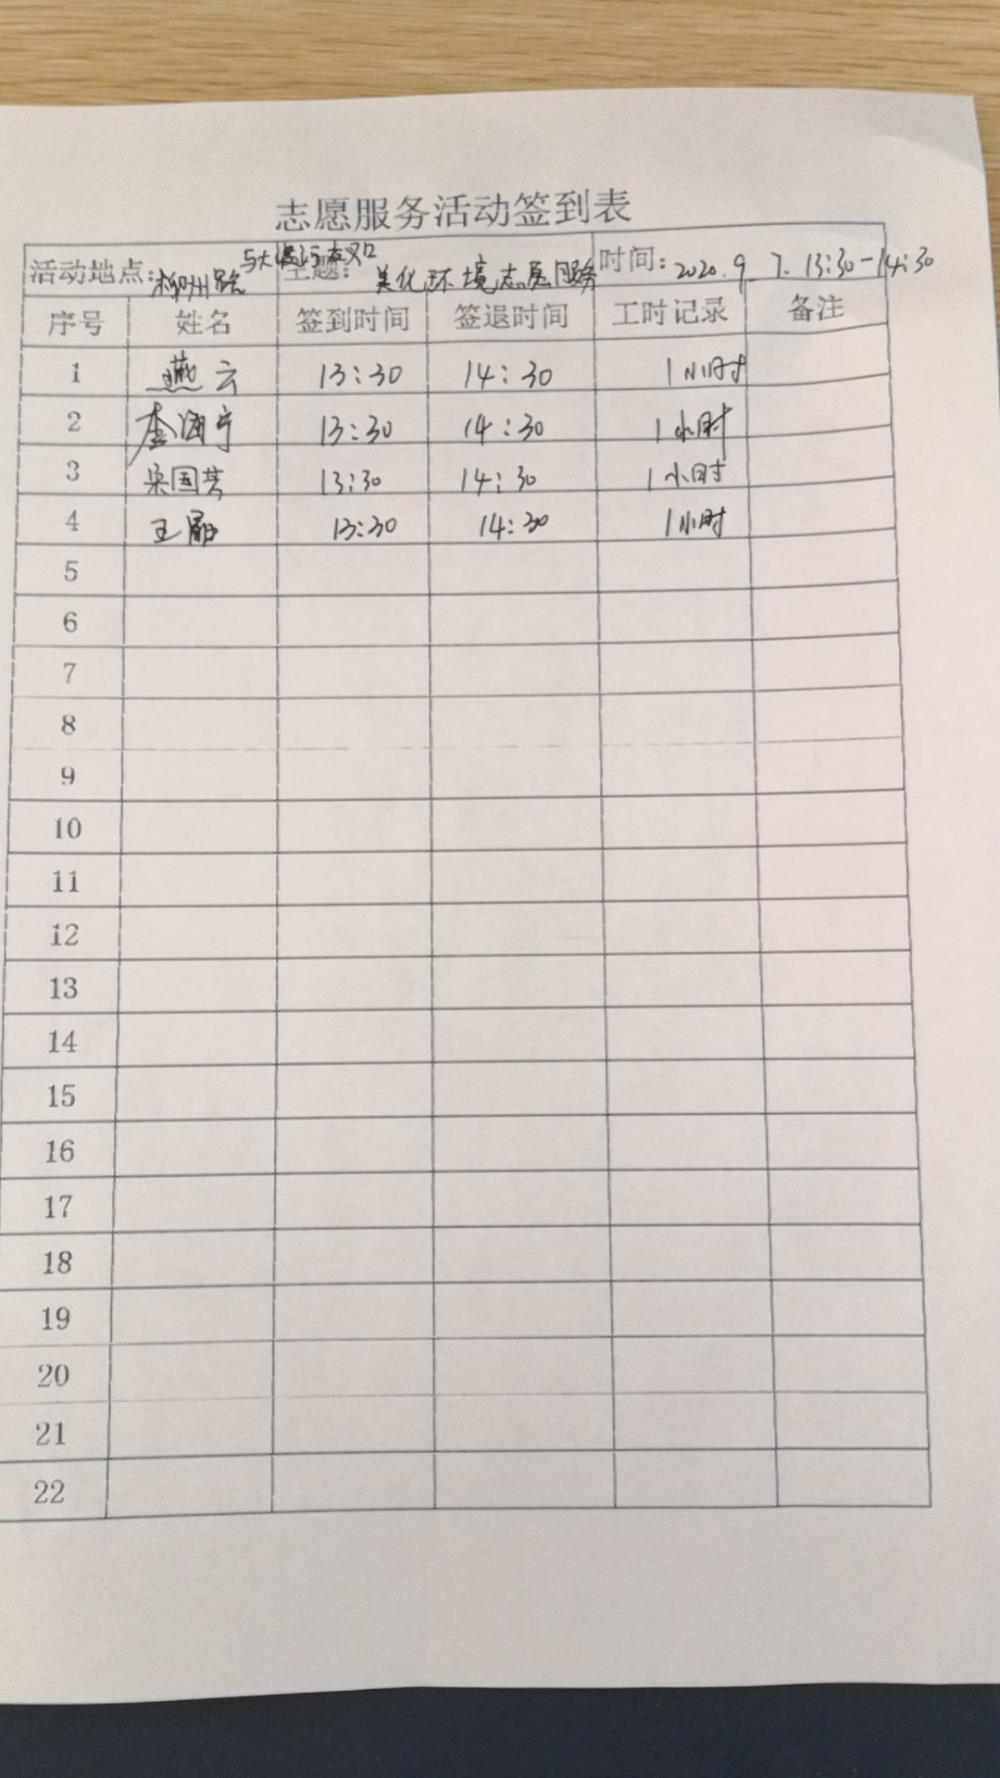 志愿服务活动签到表
活动地点:柳州路与大 主题:美化环境志愿服务 时间:2020.9.7. 13:30-14:30
序号 姓名 签到时间 签退时间 工时记录 备注
1 燕云 13:30 14:30 1小时
2 李海宁 13:30 14:30 1小时
3 梁国英 13:30 14:30 1小时
4 王 13:30 14:30 1小时
5
6
7
8
9
10
11
12
13
14
15
16
17
18
19
20
21
22